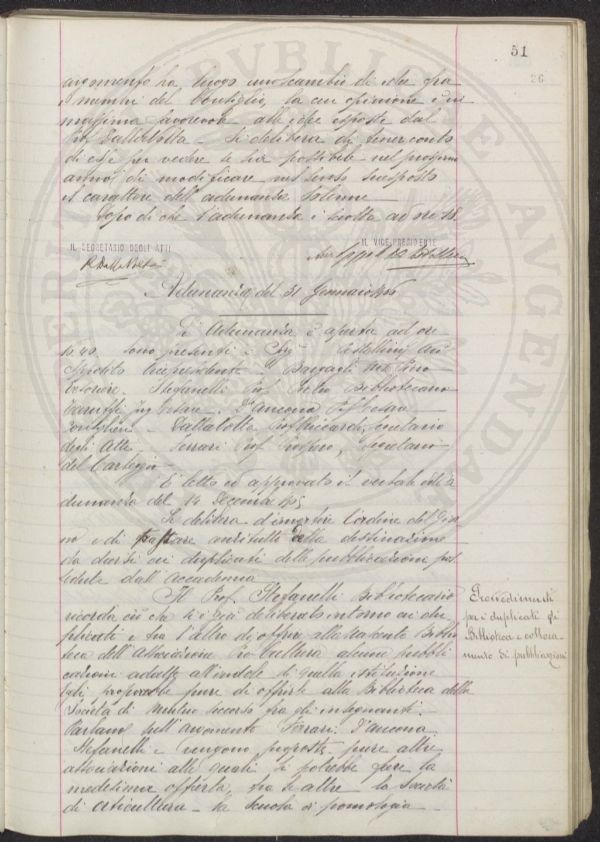 51
26
argomento ha luogo uno scambio di idee fra
i membri del Consiglio, la cui opinione è in
massima favorevole alle idee esposte dal
Prof. Dallavolta. Si delibera di tener conto
di esse per vedere se sia possibile nel prossimo
anno di modificare nel senso suesposto
il carattere dell'adunanza solenne.
Dopo di che l'adunanza è sciolta ad ore 18.
IL SEGRETARIO DEGLI ATTI
IL VICE-PRESIDENTE
R. Dalla Volta
Adunanza del 31 Gennaio 1906
L'Adunanza è aperta ad ore
sono presenti i Sigg.
Vicepresidente
Tesoriere. Stefanelli Prof. Bibliotecario
D'Ancona Prof. Cesare
Consiglieri. Dallavolta Prof. Riccardo, Segretario
degli Atti. Ferrari Prof. Prospero, Segretario
del Carteggio.
È letto ed approvato il verbale dell'a
dunanza del 14 Decembre 1905
Si delibera d'invertire l'ordine del gior
no e di trattare anzitutto della destinazione
da darsi ai duplicati delle pubblicazioni pos
sedute dall'Accademia.
Il Prof. Stefanelli Bibliotecario
ricorda ciò che si è già deliberato intorno ai du
plicati e fra l'altro di offrire alla nascente Biblio
teca dell'Associazione Pro Cultura alcune pubbli
cazioni adatte all'indole di quella istituzione
proporrebbe pure di offrirle alla Biblioteca della
Società di Mutuo Soccorso fra gli insegnanti.
Parlano sull'argomento Ferrari, D'Ancona,
Stefanelli e vengono proposte pure altre
associazioni alle quali si potrebbe fare la
medesima offerta, fra le altre la Società
di orticultura - la Scuola di pomologia -
Provvedimenti
per i duplicati di
Biblioteca e colloca-
mento di pubblicazioni